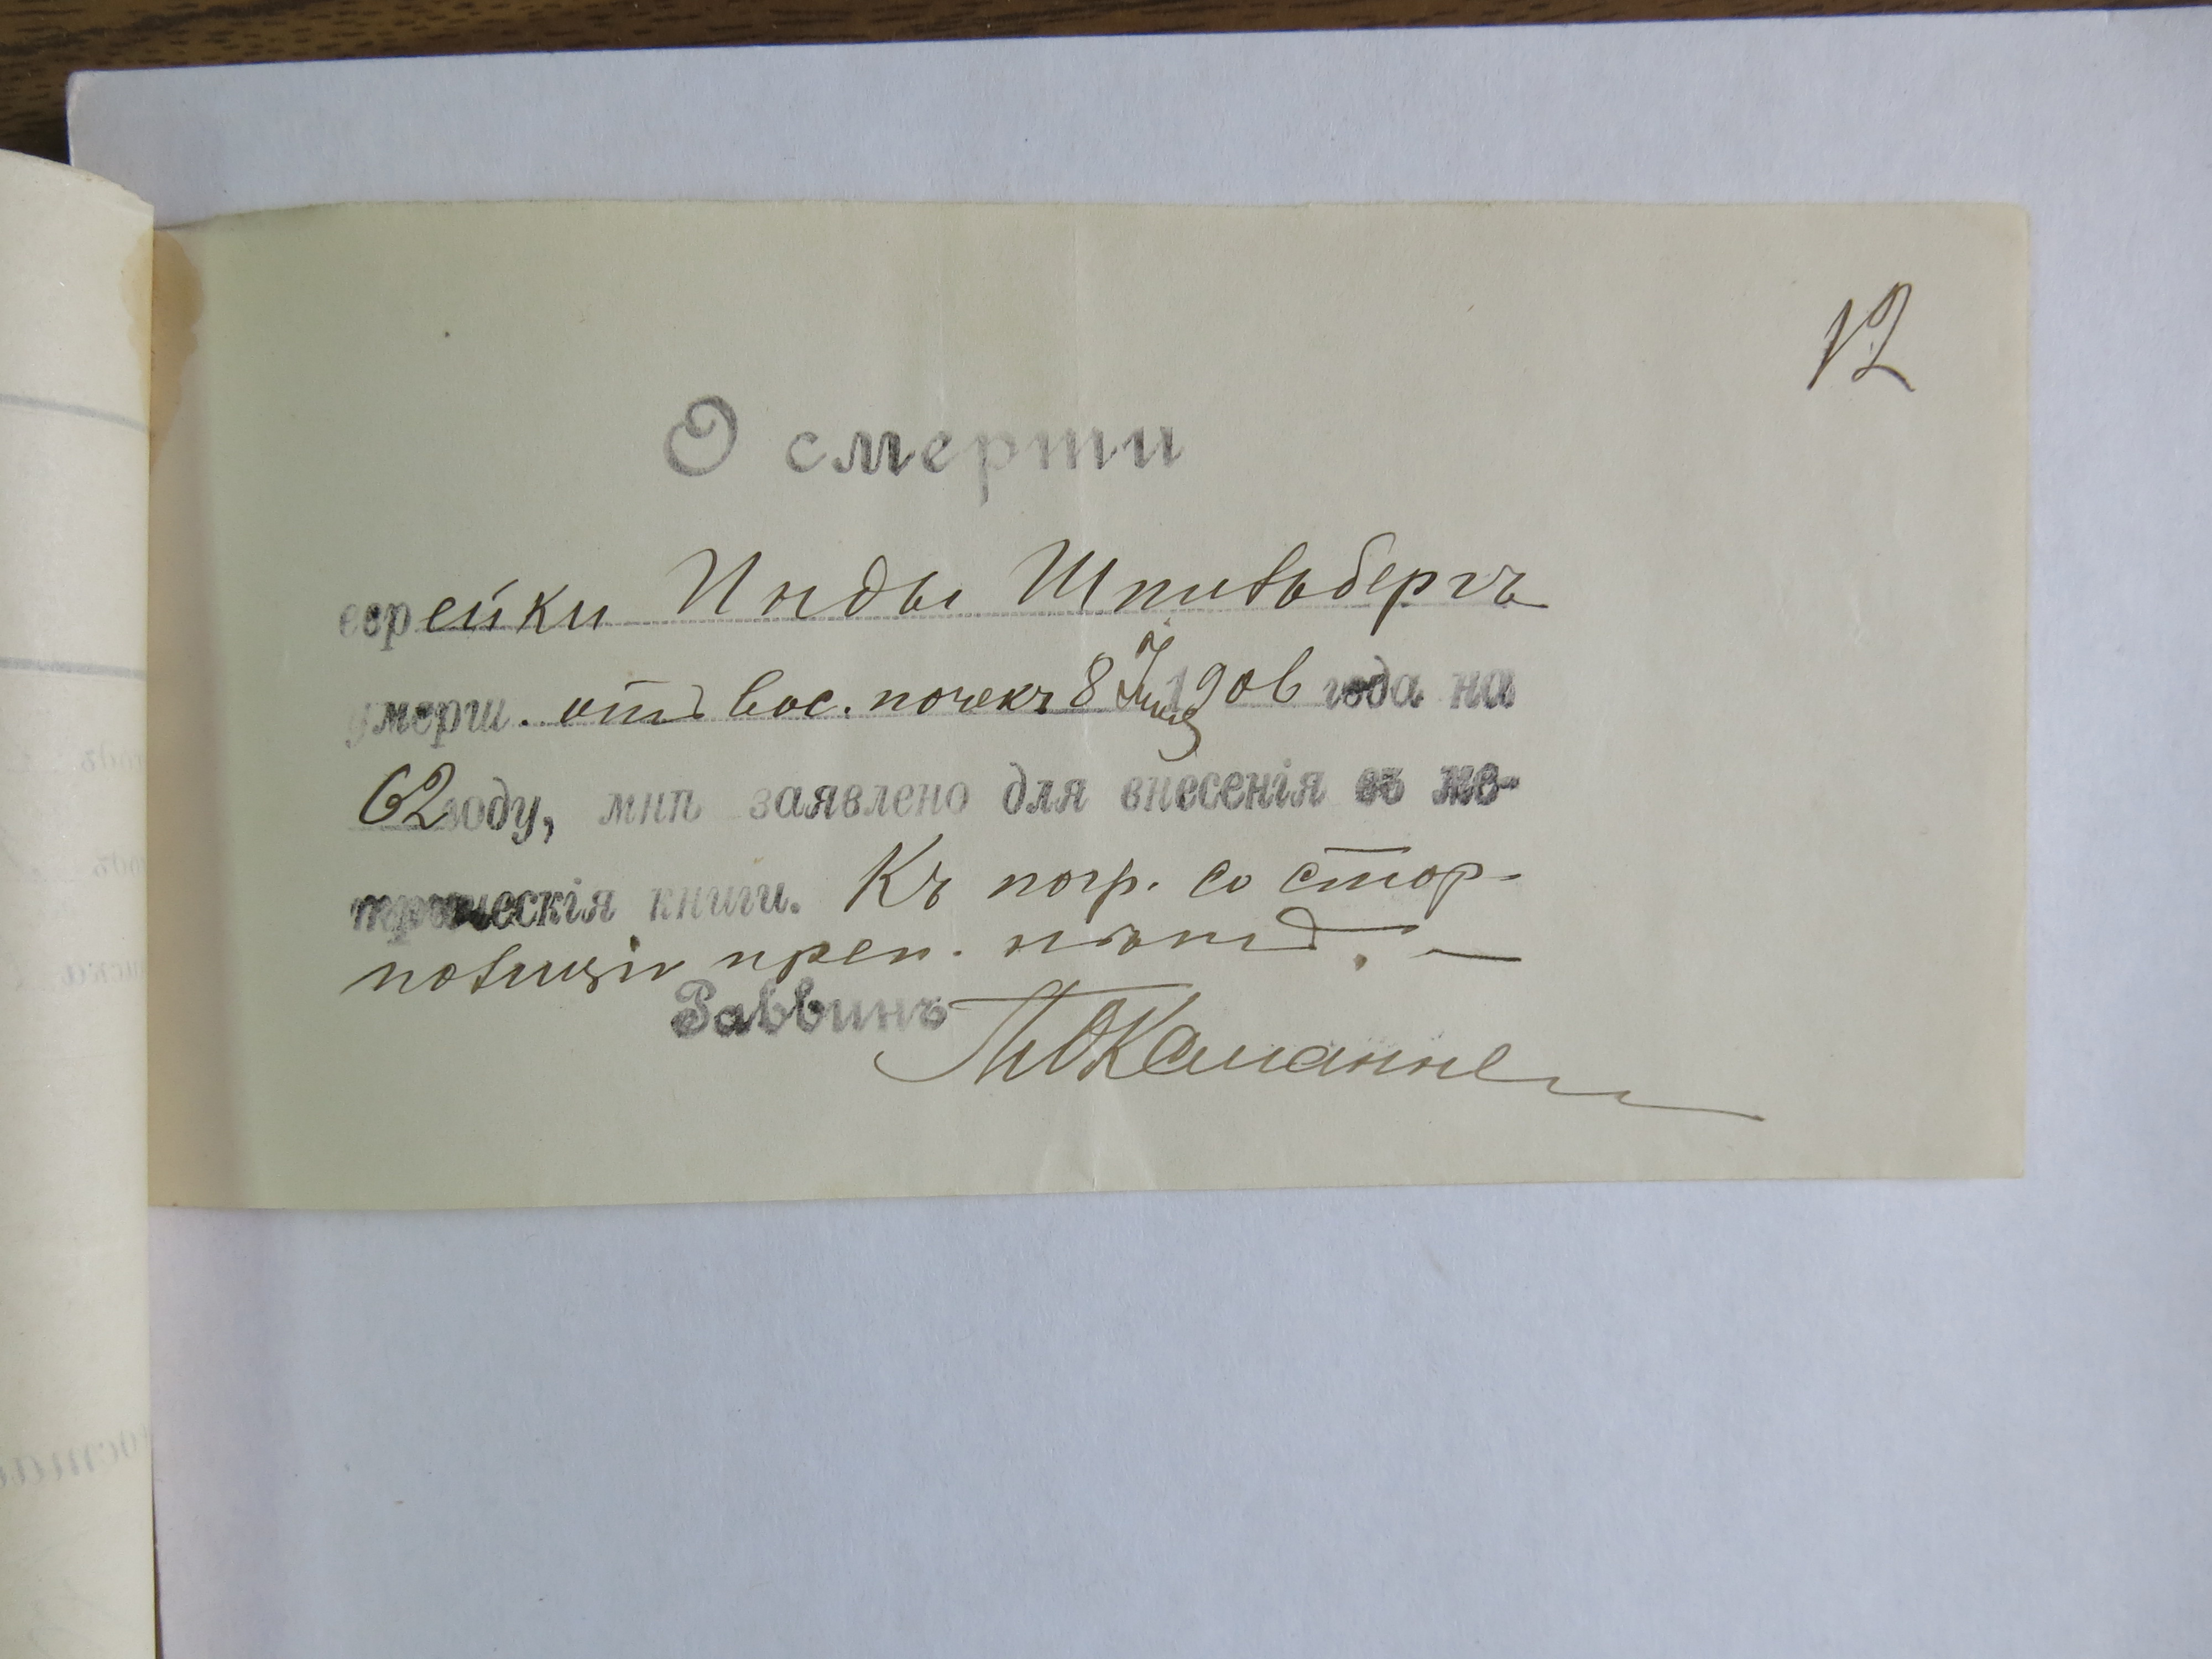 12
О смерти
еврейки Инды Шпильбергъ
умерш. отъ вос. почекъ 8 Июня 1906 года на
62 году, мнѣ заявлено для внесенія въ ме-
трическія книги. Къ погр. со стор.
полиціи преп. нѣтъ. —
Раввинъ